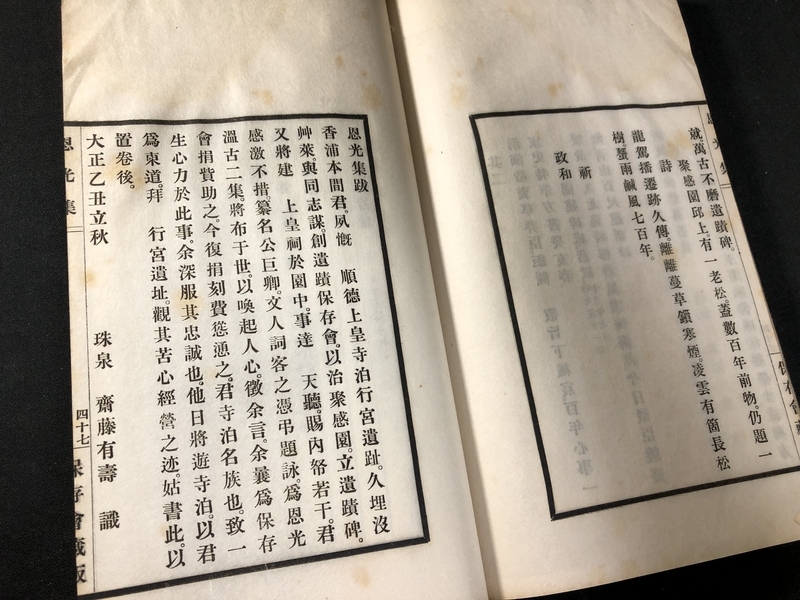 恩光集
保存會藏
就萬古不磨遺蹟碑。
聚感園邱上。有一老松。蓋數百年前物。仍題一
詩
龍駕播遷跡久傳。離離蔓草鎖寒煙。凌雲有箇長松
樹。蜑雨鹹風七百年。
政和
恩光集跋
香浦本間君。夙慨　順德上皇寺泊行宮遺趾。久埋沒
艸萊。與同志謀。創遺蹟保存會。以治聚感園。立遺蹟碑。
又將建　上皇祠於園中。事達　天聽。賜內帑若干。君
感激不措。纂名公巨卿。文人詞客之憑弔題詠。爲恩光
溫古二集。將布于世。以喚起人心。徵余言。余曩爲保存
會捐貲助之。今復捐刻費慫慂之。君寺泊名族也。致一
生心力於此事。余深服其忠誠也。他日將遊寺泊。以君
爲東道。拜　行宮遺址。觀其苦心經營之迹。姑書此。以
置卷後。
大正乙丑立秋　珠泉　齋藤有壽　識
恩光集　四十七　保存會藏版